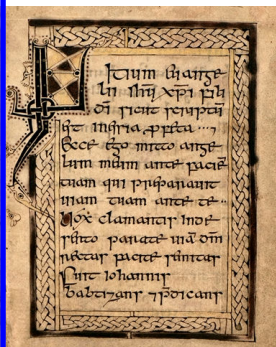 INItium euange
lii ihu xpi fili
di sicut scriptū
est inisaia ꝓfeta ···
Ecce ego mitto ange
lum meum ante faciē
tuam qui preparauit
uiam tuam ante te··
Uox clamantis inde
serto parate uiā dm̄
rectas facite semitas
Fuit iohannis
babtizans ⁊ predicans